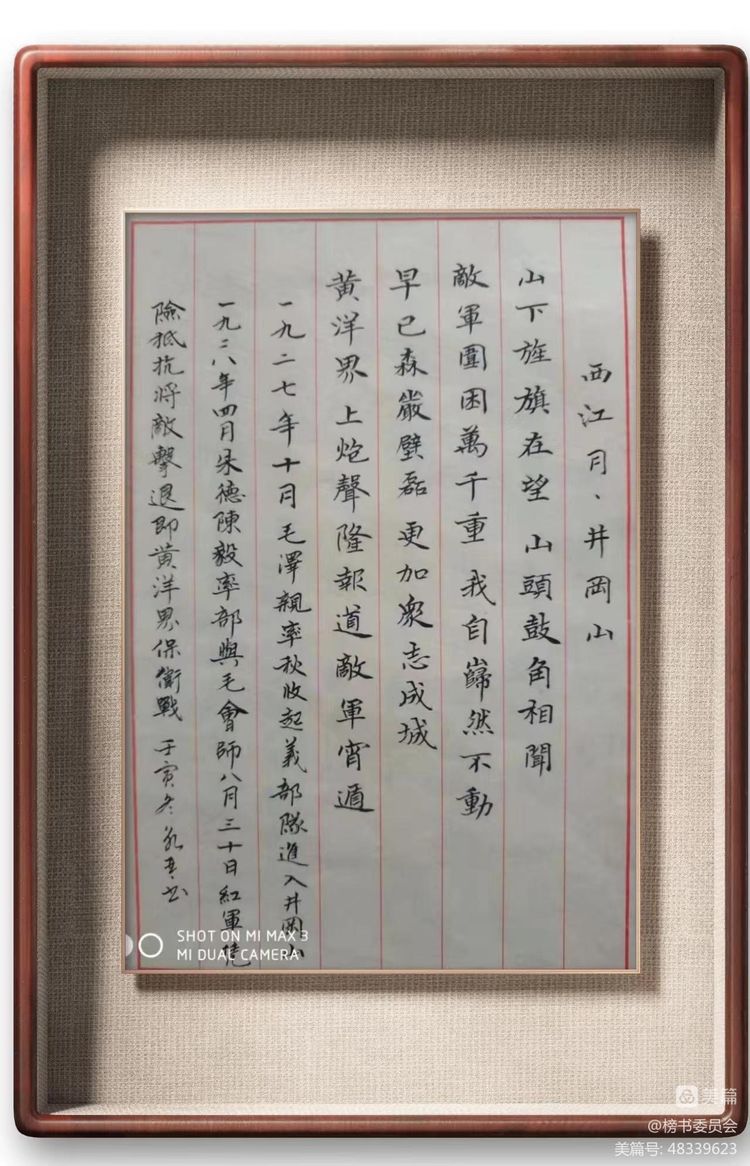 西江月、井岡山
山下旌旗在望 山頭鼓角相聞
敵軍圍困萬千重 我自巋然不動
早已森嚴壁磊 更加衆志成城
黄洋界上炮聲隆報道敵軍宵遁
一九二七年十月毛澤親率秋收起義部隊進入井岡山
一九二八年四月朱德陳毅率部與毛會師八月三十日紅軍凴
險抵抗將敵擊退即黄洋界保衛戰 壬寅冬
SHOT ON MI MAX 3
MI DUAL CAMERA
美篇
@榜书委员会
美篇号: 48339623